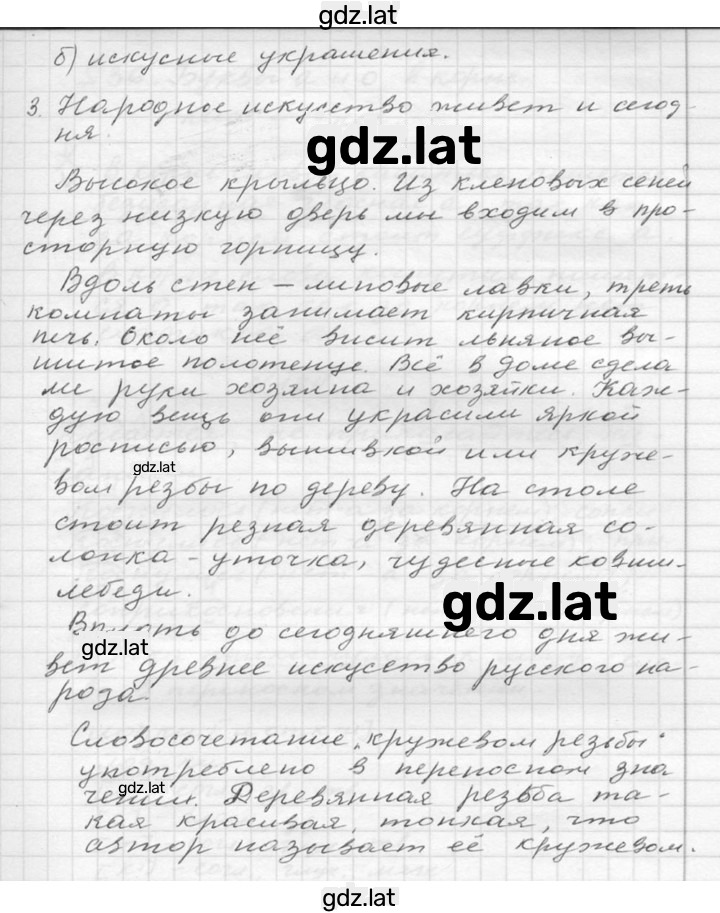 gdz.lat
б) искусные украшения.
3. Народное искусство живет и сегод-
ня.
gdz.lat
Высокое крыльцо. Из кленовых сеней
через низкую дверь мы входим в про-
сторную горницу.
Вдоль стен – липовые лавки, треть
комнаты занимает кирпичная
печь. Около неё висит льняное вы-
шитое полотенце. Всё в доме сдела
ли руки хозяина и хозяйки. Каж-
дую вещь они украсили яркой
росписью, вышивкой или круже-
gdz.lat
вом резьбы по дереву. На столе
стоит резная деревянная со-
лонка - уточка, чудесные ковши-
лебеди.
gdz.lat
Вплоть до сегодняшнего дня жи-
gdz.lat
вет древнее искусство русского на-
рода.
Словосочетание „кружевом резьбы"
употреблено в переносном зна
gdz.lat
чении. Деревянная резьба та-
кая красивая, тонкая, что
автор называет её кружевом.
gdz.lat